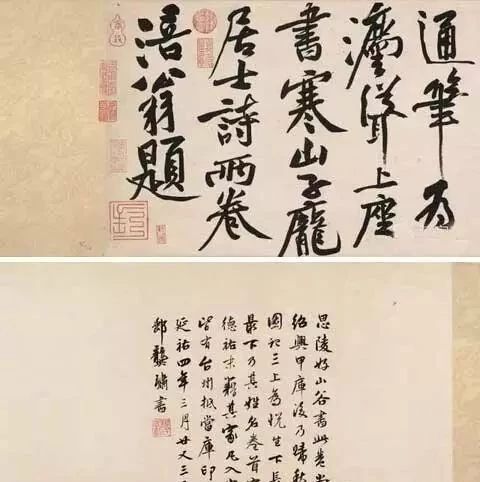 通筆為
灋聳上座
書寒山子龐
居士詩兩卷
涪翁題
思陵好山谷書此卷
紹興甲庫後乃歸秋
圖記三上為悅生下長
最下乃其姓名卷首
德祐末籍其家凡入
皆有台州抵當庫印
延祐四年三月廿又三
郡龔璛書